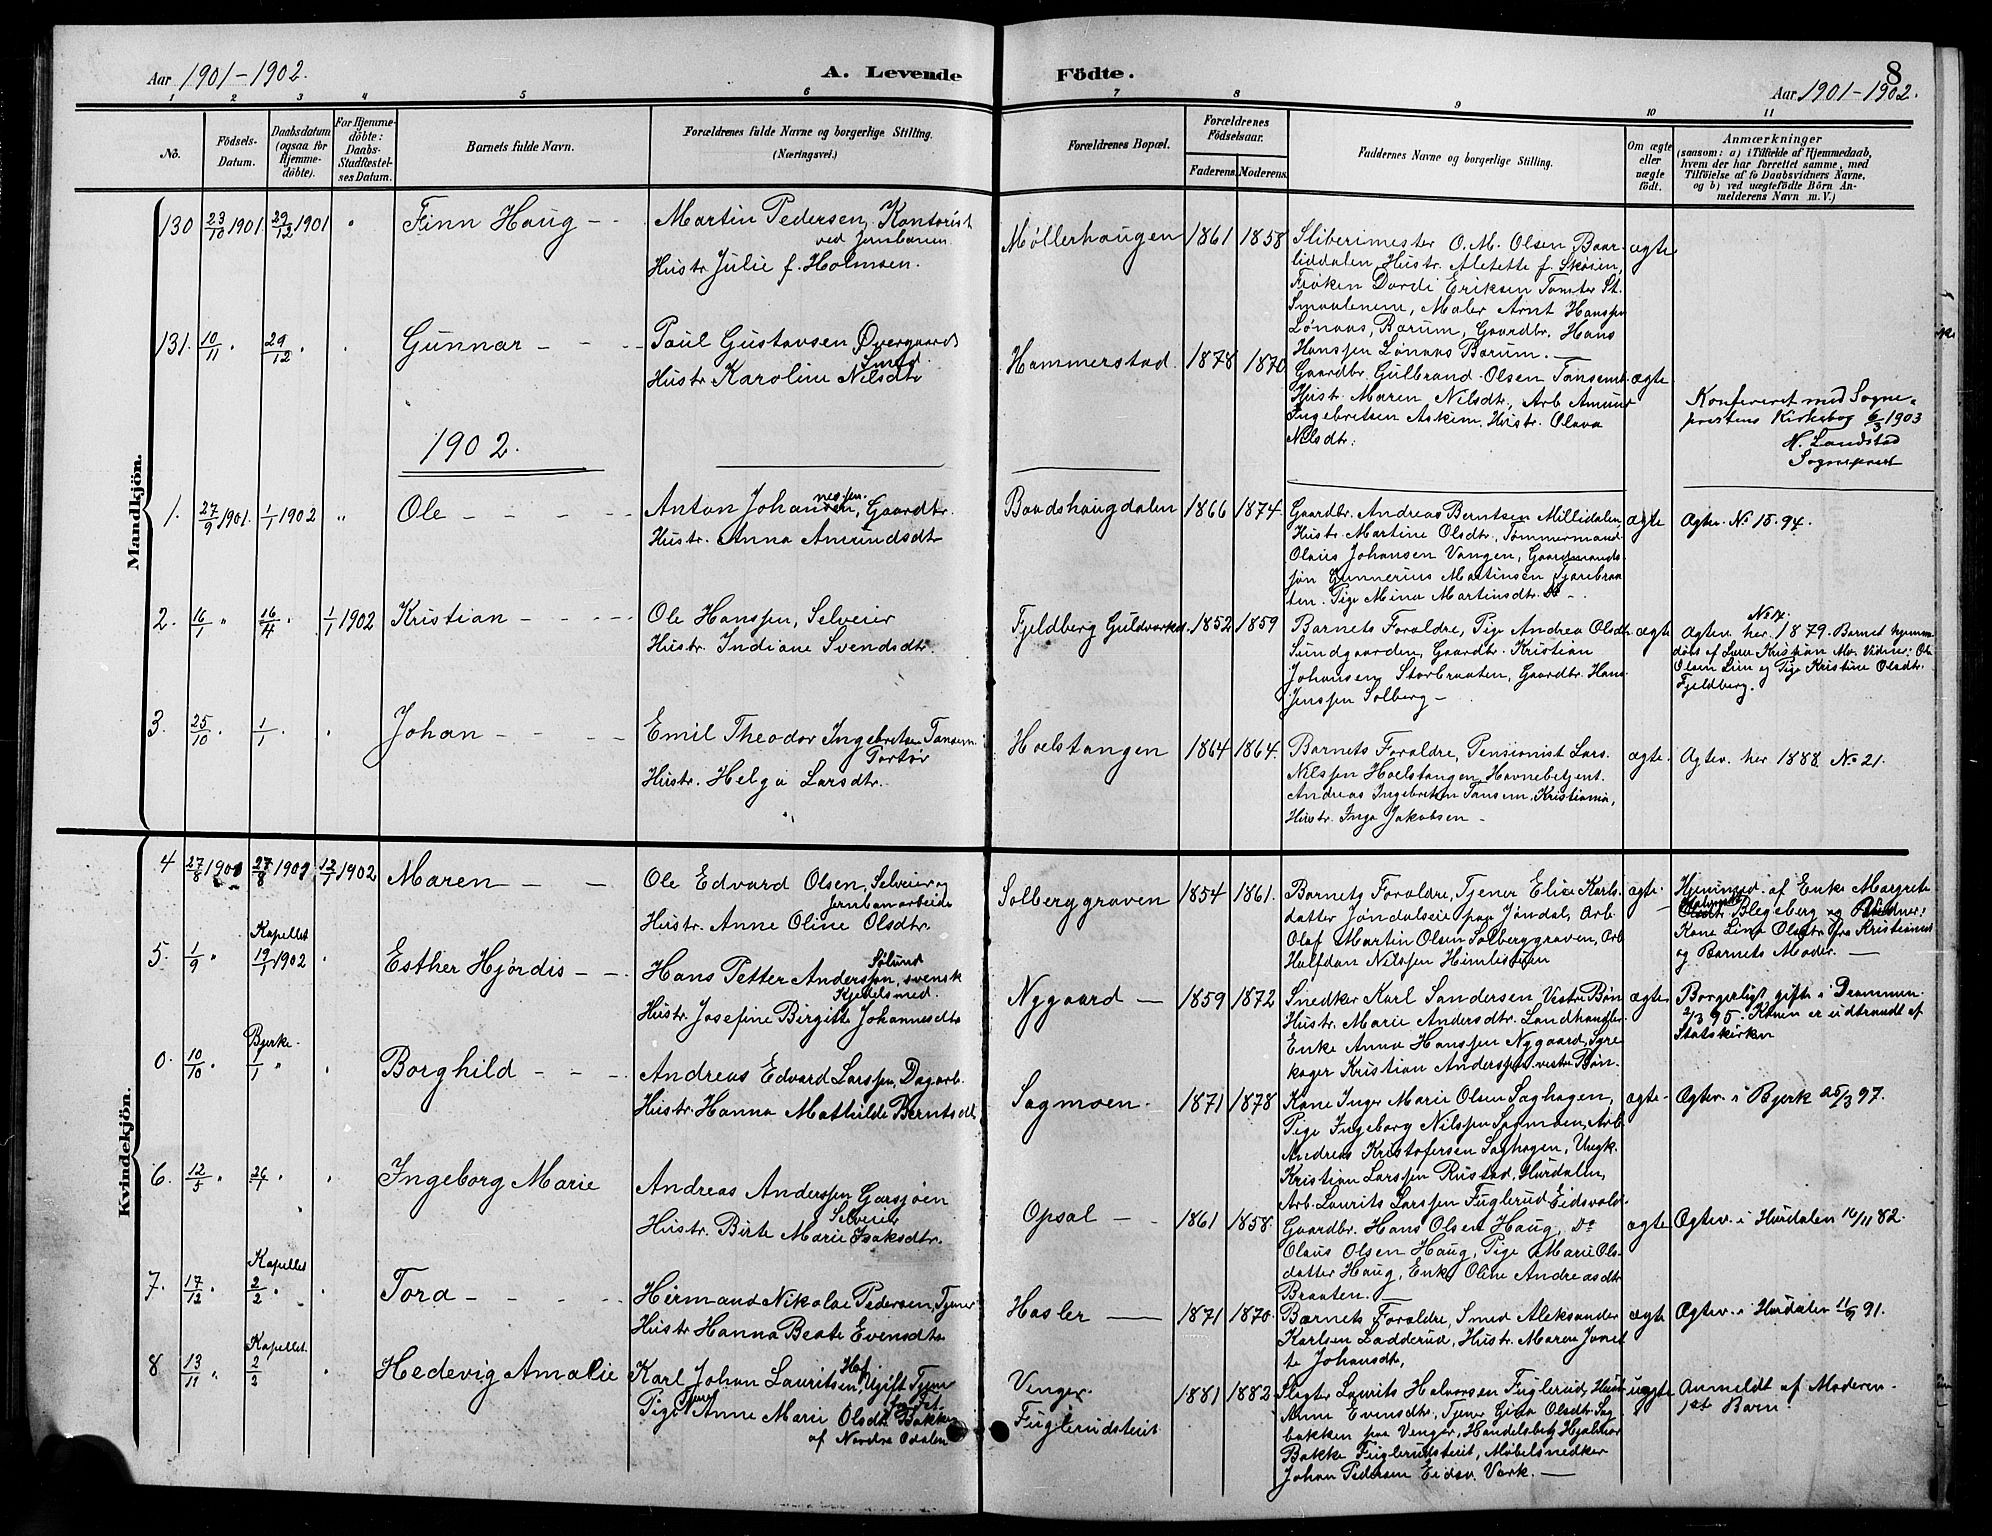 Aar 1901-1902.
A. Levende
Födte.
8
Aar 1901-1902.
1 2 3 4 5 6 7 8 9 10 11
No.
Födsels-
Datum.
Daabsdatum
(ogsaa for
Hjemme-
döbte).
For Hjemme-
döbte:
Daabs-
Stadfæstel-
ses Datum.
Barnets fulde Navn.
Forældrenes fulde Navne og borgerlige Stilling.
(Næringsvei.)
Forældrenes Bopæl.
Forældrenes
Födselsaar.
Faderens. Moderens.
Faddernes Navne og borgerlige Stilling.
Om ægte
eller
uægte
födt.
Anmærkninger
(saasom: a) i Tilfælde af Hjemmedaab,
hvem der har forrettet samme, med
Tilföielse af to Daabsvidners Navne,
og b) ved uægtefödte Börn An-
melderens Navn m. V.)
Mandkjön.
130 23/10 1901 29/12 1901 " Finn Haug - -
Martin Pedersen, Kontorist
ved Jernbanen
Hustr Julie f. Holmsen.
Møllerhaugen 1861 1858
Sliberimester O. M. Olsen Baar-
liddalen, Hustr. Aletette f. Skøien,
Frøken Dordi Eriksen Tomter St.
Smaalenene, Maler Arnt Hanssen
Lønaas, Bærum, Gaardbr. Hans
Hanssen Lønaas Bærum. -
ægte
131. 10/11 " 29/12 " " Gunnar - - -
Paul Gustavsen Øvergaard
Smed.
Hustr Karoline Nilsdtr
Hammerstad. 1878 1870
Gaardbr. Gulbrand Olsen Tansem
Hustr. Maren Nilsdtr, Arb Amund
Ingebretsen Askim, Hustr. Olava
Nilsdtr.
ægte
Konfereret med Sogne-
prestens Kirkebog 6/3 1903
N. Landstad
Sogneprest
1902.
1. 27/9 1901. 1/1 1902 " Ole - - - -
Anton Johannessen, Gaardbr.
Hustr. Anna Amundsdtr
Baadshaugdalen 1866 1874
Gaardbr. Andreas Berntsen Millidalen,
Hustr. Martine Olsdtr, Tømmermand
Olaus Johansen Vangen, Gaardmands-
søn Gunnerius Martinsen Tjærebraa-
ten. Pige Mina Martinsdtr. Do -
ægte
Ægtev. No 15. 94.
2. 16/1 " 16/4 " 1/1 1902 Kristian - - - -
Ole Hanssen, Selveier
Hustr. Indiane Svendsdtr.
Fjeldberg Guldværket. 1852 1859
Barnets Forældre, Pige Andrea Olsdtr
Sundgaarden, Gaardbr. Kristian
Johansen Storbraaten, Gaardbr. Hans
Jenssen Solberg -
ægte
No 17.
Ægtev. her 1879. Barnet hjemme-
døbt af Lærer Kristian Mo. Vidner: Ole
Olsen Lien og Pige Kristine Olsdtr.
Fjeldberg.
3. 25/10 " 1/1 " " Johan - - - -
Emil Theodor Ingebretsen Tansem
Portør
Hustr. Helga Larsdtr.
Hoelstangen 1864 1864.
Barnets Forældre, Pensionist Lars
Nilssen Hoelstangen, Havnebetjent
Andreas Ingebretsen Tansem, Kristiania,
Hustr. Inga Jakobsen -
ægte.
Ægtev. her 1888 No 21.
Kvindekjön.
4 27/8 1901 27/8 1901 12/1 1902 Maren - -
Ole Edvard Olsen, Selveier og
Jernbanearbeider
Hustr. Anne Oline Olsdtr.
Solberggraven 1854 1861.
Barnets Forældre, Tjener Elise Karls-
datter Jøndalseie paa Jøndal, Arb.
Olaf Martin Olsen Solberggraven, Arb
Halfdan Nilssen Himlestien
ægte.
Hjemmed. af Enke Margrete
Olsdtr Blegeberg og Vidner:
Kone Lina Olsdtr fra Kristiania
og Barnets Moder. -
Kapellet
5. 1/9 " 19/1 1902 " Esther Hjørdis - -
Sølund
Hans Petter Anderssen, svensk
Kjedelsmed.
Hustr. Josefine Birgitte Johannesdtr
Nygaard - 1859 1872
Snedker Karl Sandersen, Vestre Bøn
Hustr. Marie Andersdtr. Landhandler
Enke Anna Hanssen Nygaard, Tøre-
kager Kristian Anderssen vestre Bøn.
ægte
Borgerligt gifte i Drammen
2/3 95. Konen er udtraadt af
Statskirken
Bjerke.
0. 10/10 " 1/1 " " Borghild - - -
Andreas Edvard Larssen, Dagarb.
Hustr. Hanna Mathilde Berntsdtr
Sagmoen. 1871 1878
Kone Inger Marie Olsen Saghagen,
Pige Ingeborg Nilssen Sagmoen, Arb
Andreas Kristofersen Saghagen, Ungk.
Kristian Larssen Rustad, Hurdalen,
Arb. Laurits Larssen Fuglerud Eidsvold.
ægte
Ægtev. i Bjerk 25/3 97.
6. 12/5 " 26/1 " " Ingeborg Marie
Andreas Anderssen Garsjøen
Selveier
Hustr. Birte Marie Isaksdtr.
Opsal - - 1861 1858.
Gaardbr. Hans Olsen Haug, Do
Olaus Olsen Haug, Pige Marie Ols-
datter Haug, Enke Oline Andreasdtr
Braaten. -
ægte
Ægtev. i Hurdalen 16/11 82.
Kapellet
7. 17/12 " 2/2 " " Tora - - - -
Hermand Nikolai Pedersen, Tjener
Hustr Hanna Beate Evensdtr
Hasler - 1871 1870
Barnets Forældre, Smed Aleksander
Karlsen Ladderud, Hustr. Maren Janet-
te Johansdtr,
ægte
Ægtev. i Hurdalen 11/9 91.
Kapellet
8 13/11 " 2/2 " Hedevig Amalie
Karl Johan Lauritsen, Ugift Tjener
Pige Anne Marie Olsdtr Bakken
af Nordre Odalen
Venger
Fuglerudsteiet
1881 1882
Slagter Laurits Halvorsen Fuglerud, Hustr
Anne Evensdtr, Tjener Gina Olsdtr Sag
bakken paa Venger, Handelsbetj Hjalmar
Bakke Fuglerudsteiet, Møbelsnedker
Johan Pedersen Eidsv. Værk. -
uægte
Anmeldt af Moderen.
1st Barn.